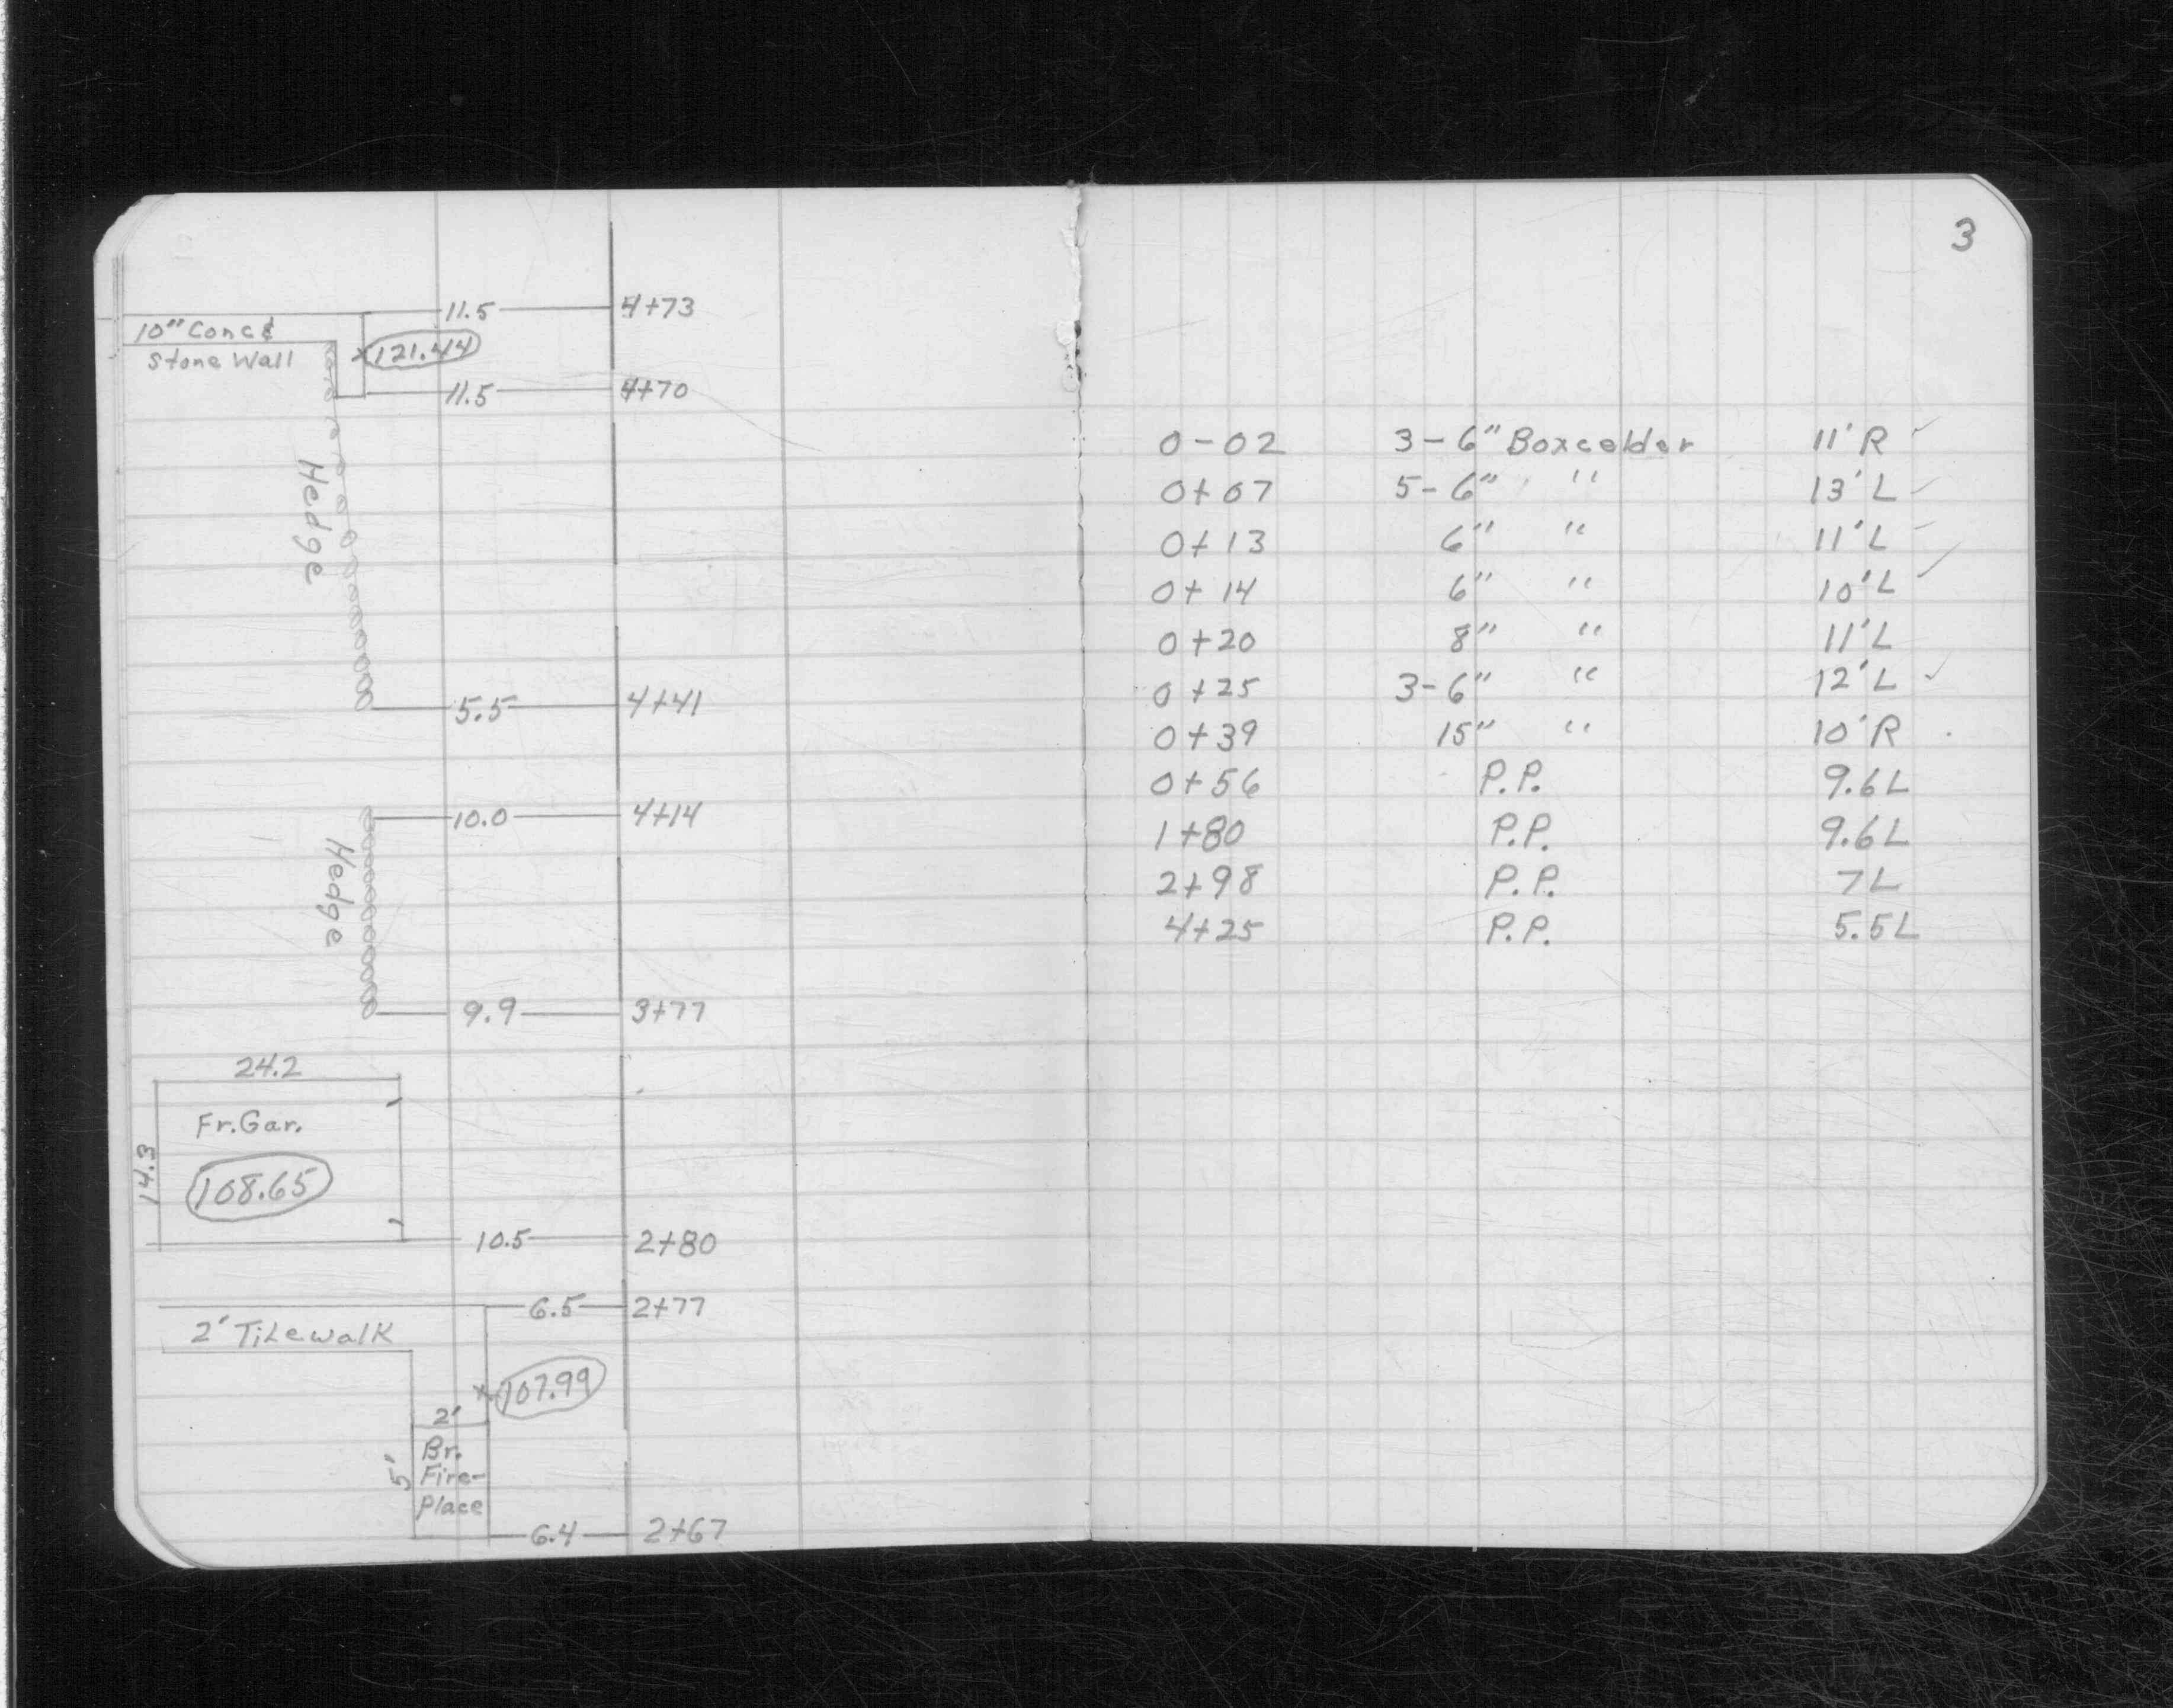 11.5 4+73
10" Conc &
121.44
Stone Wall
11.5 4+70
Hedge
5.5 4+41
10.0 4+14
Hedge
9.9 3+77
24.2
Fr. Gar.
14.3
108.65
10.5 2+80
6.5 2+77
2' Tilewalk
107.99
2'
5'
Br.
Fire-
Place
6.4 2+67
3
0-02 3-6" Boxcelder 11'R
0+07 5-6" " 13'L
0+13 6" " 11'L
0+14 6" " 10'L
0+20 8" " 11'L
0+25 3-6" " 12'L
0+39 15" " 10'R
0+56 P.P. 9.6L
1+80 P.P. 9.6L
2+98 P.P. 7L
4+25 P.P. 5.5L